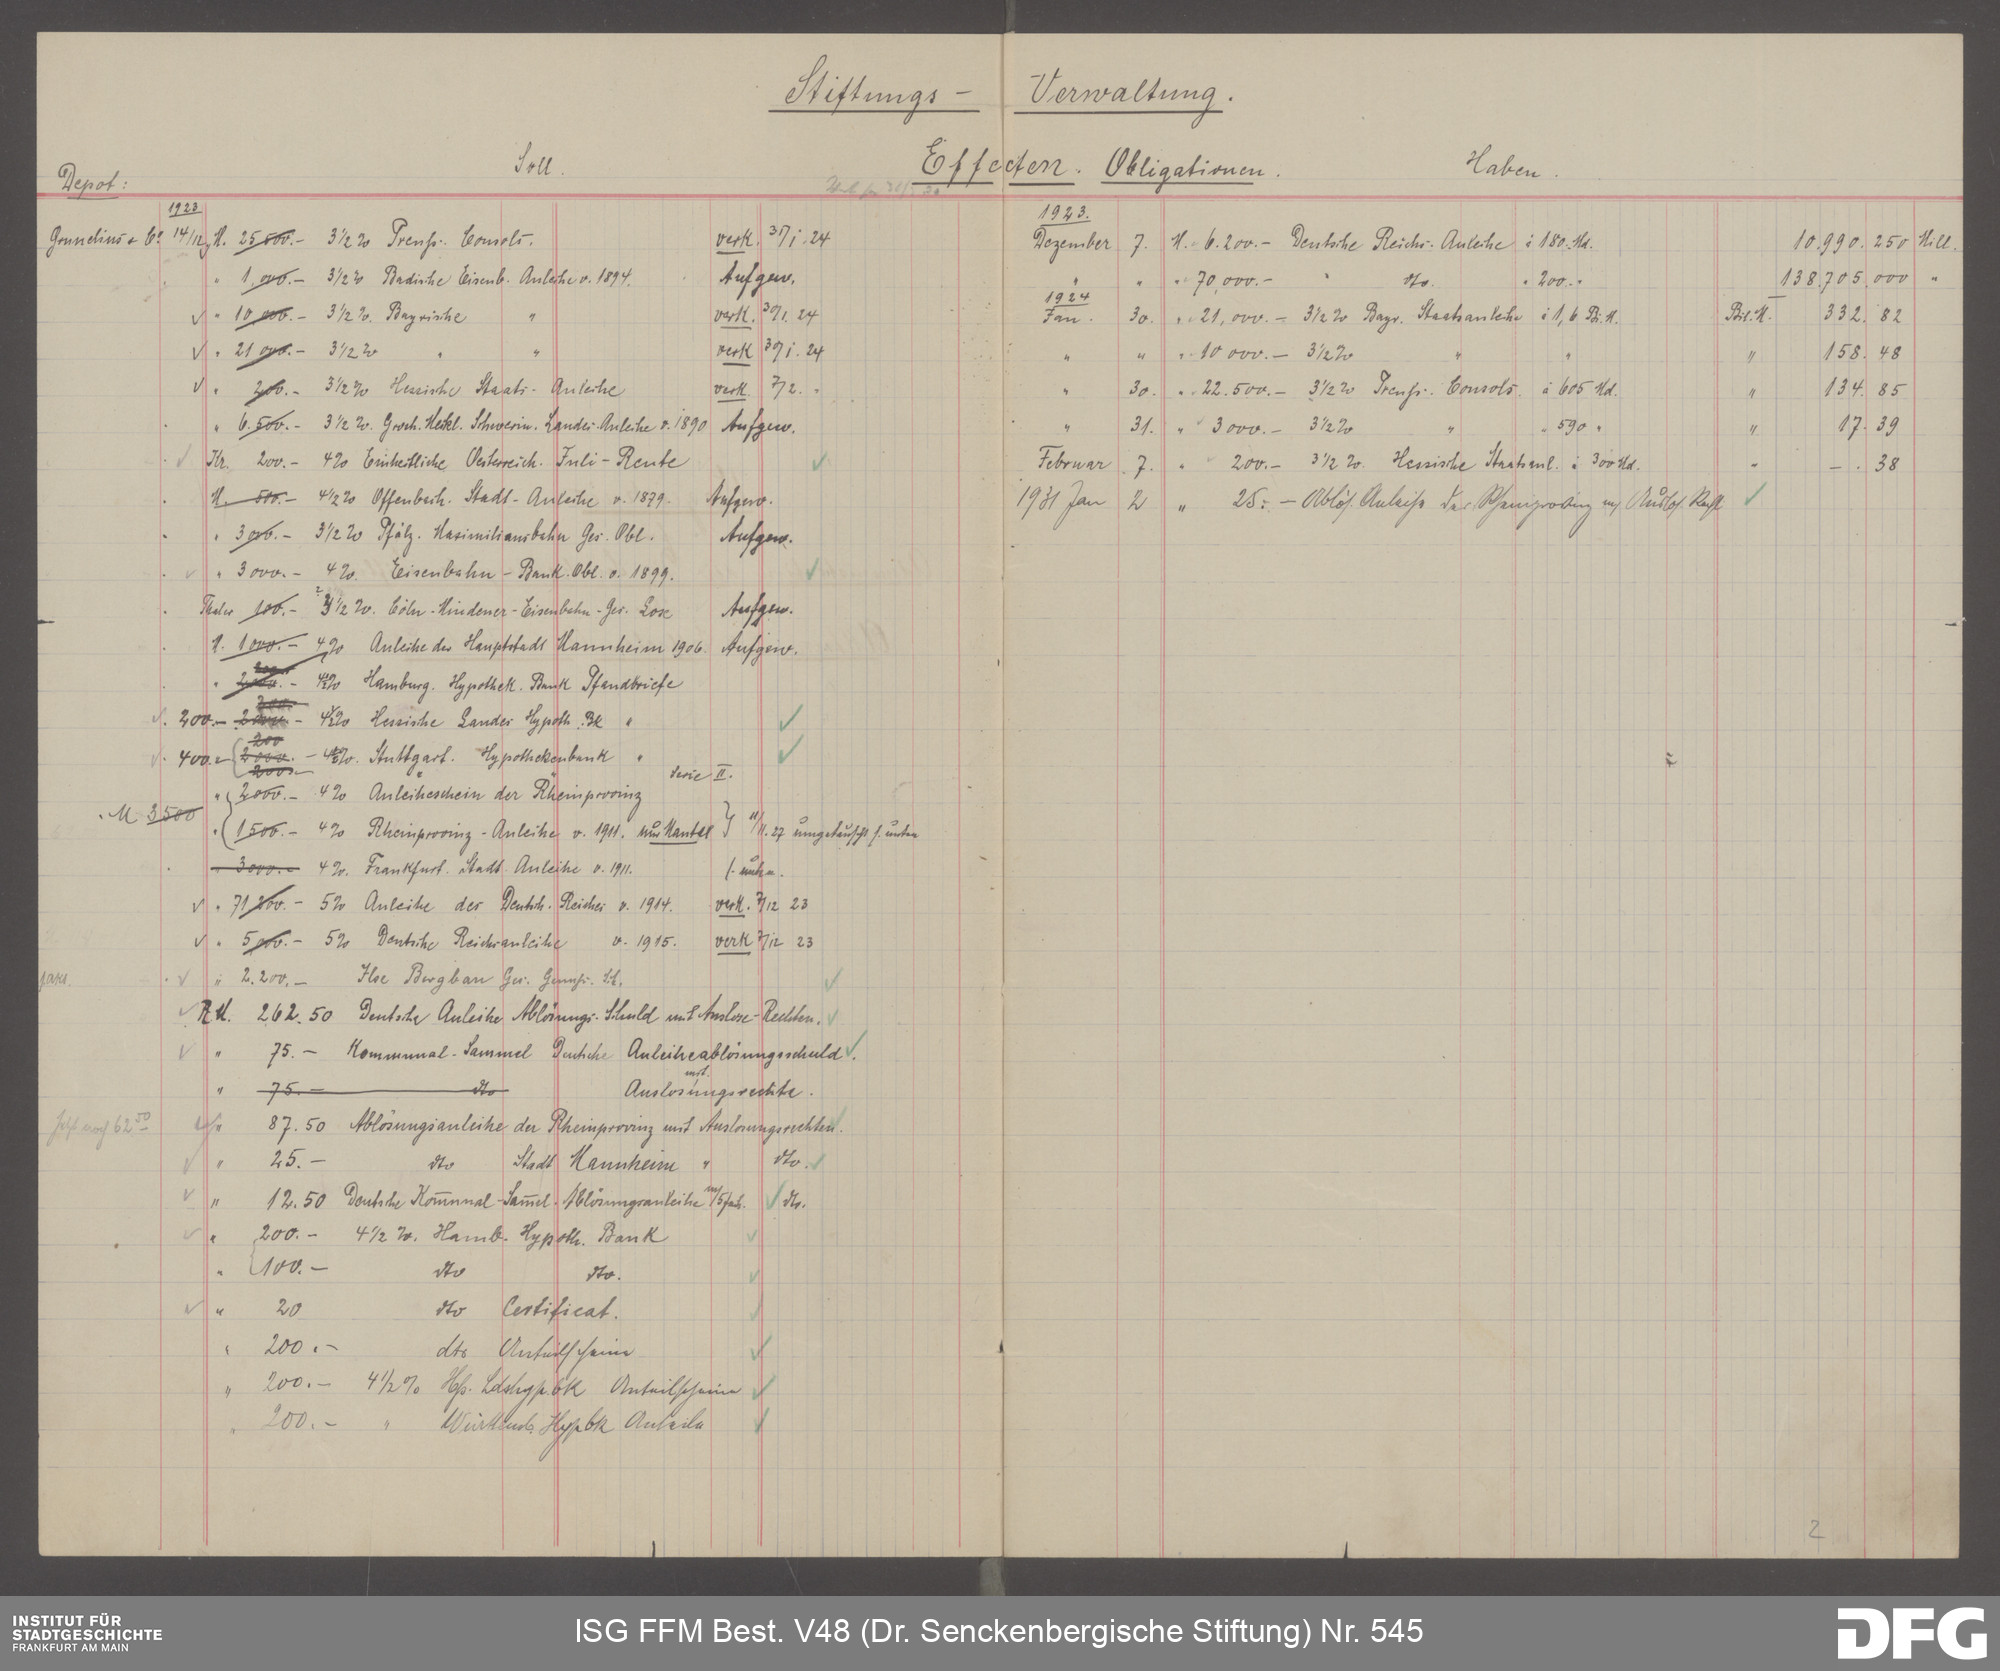 Stiftungs - Verwaltung.
Soll. Effecten. Obligationen. Haben.
Depot:
1923
Grunelius & Co 14/12 M. 25 500.- 3 1/2 % Preuss. Consols. verk. 31/1. 24
" 1.000.- 3 1/2 % Badische Eisenb. Anleihe v. 1894. Aufgew.
" 10,000.- 3 1/2 %. Bayrische " verk. 30/1. 24
" 21 000.- 3 1/2 % " " verk 30/1. 24
" 200.- 3 1/2 % Hessische Staats-Anleihe verk. 7/2. "
" 6.500.- 3 1/2 %. Grosh. Meckl. Schwerin. Landes-Anleihe v. 1890 Aufgew.
Kr. 200.- 4% Einheitliche Oesterreich. Juli-Rente
M. 500.- 4 1/2 % Offenbach. Stadt-Anleihe v. 1879. Aufgew.
" 3000.- 3 1/2 % Pfälz. Maximiliansbahn Ges. Obl. Aufgew.
" 3000.- 4%. Eisenbahn-Bank. Obl. v. 1899.
Thaler 100.- 3 1/2 %. Cöln-Mindener-Eisenbahn-Ges. Lose Aufgew.
M. 1000.- 4% Anleihe der Hauptstadt Mannheim 1906. Aufgew.
" 2000.- 4% Hamburg. Hypothek. Bank Pfandbriefe
200.- 2000.- 4% Hessische Landes Hypoth. Bk "
200
400.- 2000.- 4%. Stuttgart. Hypothekenbank "
200.-
Serie II.
" 2000.- 4% Anleiheschein der Rheinprovinz
M 3500
" 1500.- 4% Rheinprovinz-Anleihe v. 1911. nur Mantel 11/11. 27 umgetauscht s. unten
" 3000.- 4%. Frankfurt. Stadt Anleihe v. 1911. s. unten.
" 71 200.- 5% Anleihe des Deutsch. Reiches v. 1914. verk. 7/12 23
" 5,000.- 5% Deutsche Reichsanleihe v. 1915. verk 7/12 23
" 2.200.- Ilse Bergbau Ges. Genuss. Sch.
RM. 262.50 Deutsche Anleihe Ablösungs-Schuld mit Auslose-Rechten.
" 75.- Kommunal-Sammel Deutsche Anleiheablösungsschuld.
" 75.- dto mit Auslosungsrechte.
Jetzt noch 62 50
" 87.50 Ablösungsanleihe der Rheinprovinz mit Auslosungsrechten.
" 25.- dto Stadt Mannheim " dto.
" 12.50 Deutsche Kommunal-Sammel-Ablösungsanleihe m/5fach. dto.
" 200.- 4 1/2 %. Hamb. Hypoth. Bank
" 100.- dto dto.
" 20 dto Certificat.
" 200.- dto Anteilscheine
" 200.- 4 1/2 % Hess. Ldshyp.bk Anteilscheine
" 200.- " Württemb. Hypbk Anteile
1923.
Dezember 7. M. 6.200.- Deutsche Reichs-Anleihe à 180.Md. 10.990.250 Mill.
" " " 70,000.- " dto. " 200." 138.705,000 "
1924
Jan. 30. " 21,000.- 3 1/2 % Bayr. Staatsanleihe à 1,6 Bi.M. Bil.M. 332.82
" " " 10 000.- 3 1/2 % " " " 158.48
" 30. " 22.500.- 3 1/2 % Preuss. Consols. à 605 Md. " 134.85
" 31. " 3000.- 3 1/2 % " " 590 " " 17.39
Februar 7. " 200.- 3 1/2 %. Hessische Staatsanl. à 300 Md. " -.38
1931 Jan 2 " 25.- Ablös. Anleihe der Rheinprovinz m/ Auslos. Recht
2
INSTITUT FÜR
STADTGESCHICHTE
FRANKFURT AM MAIN
ISG FFM Best. V48 (Dr. Senckenbergische Stiftung) Nr. 545
DFG